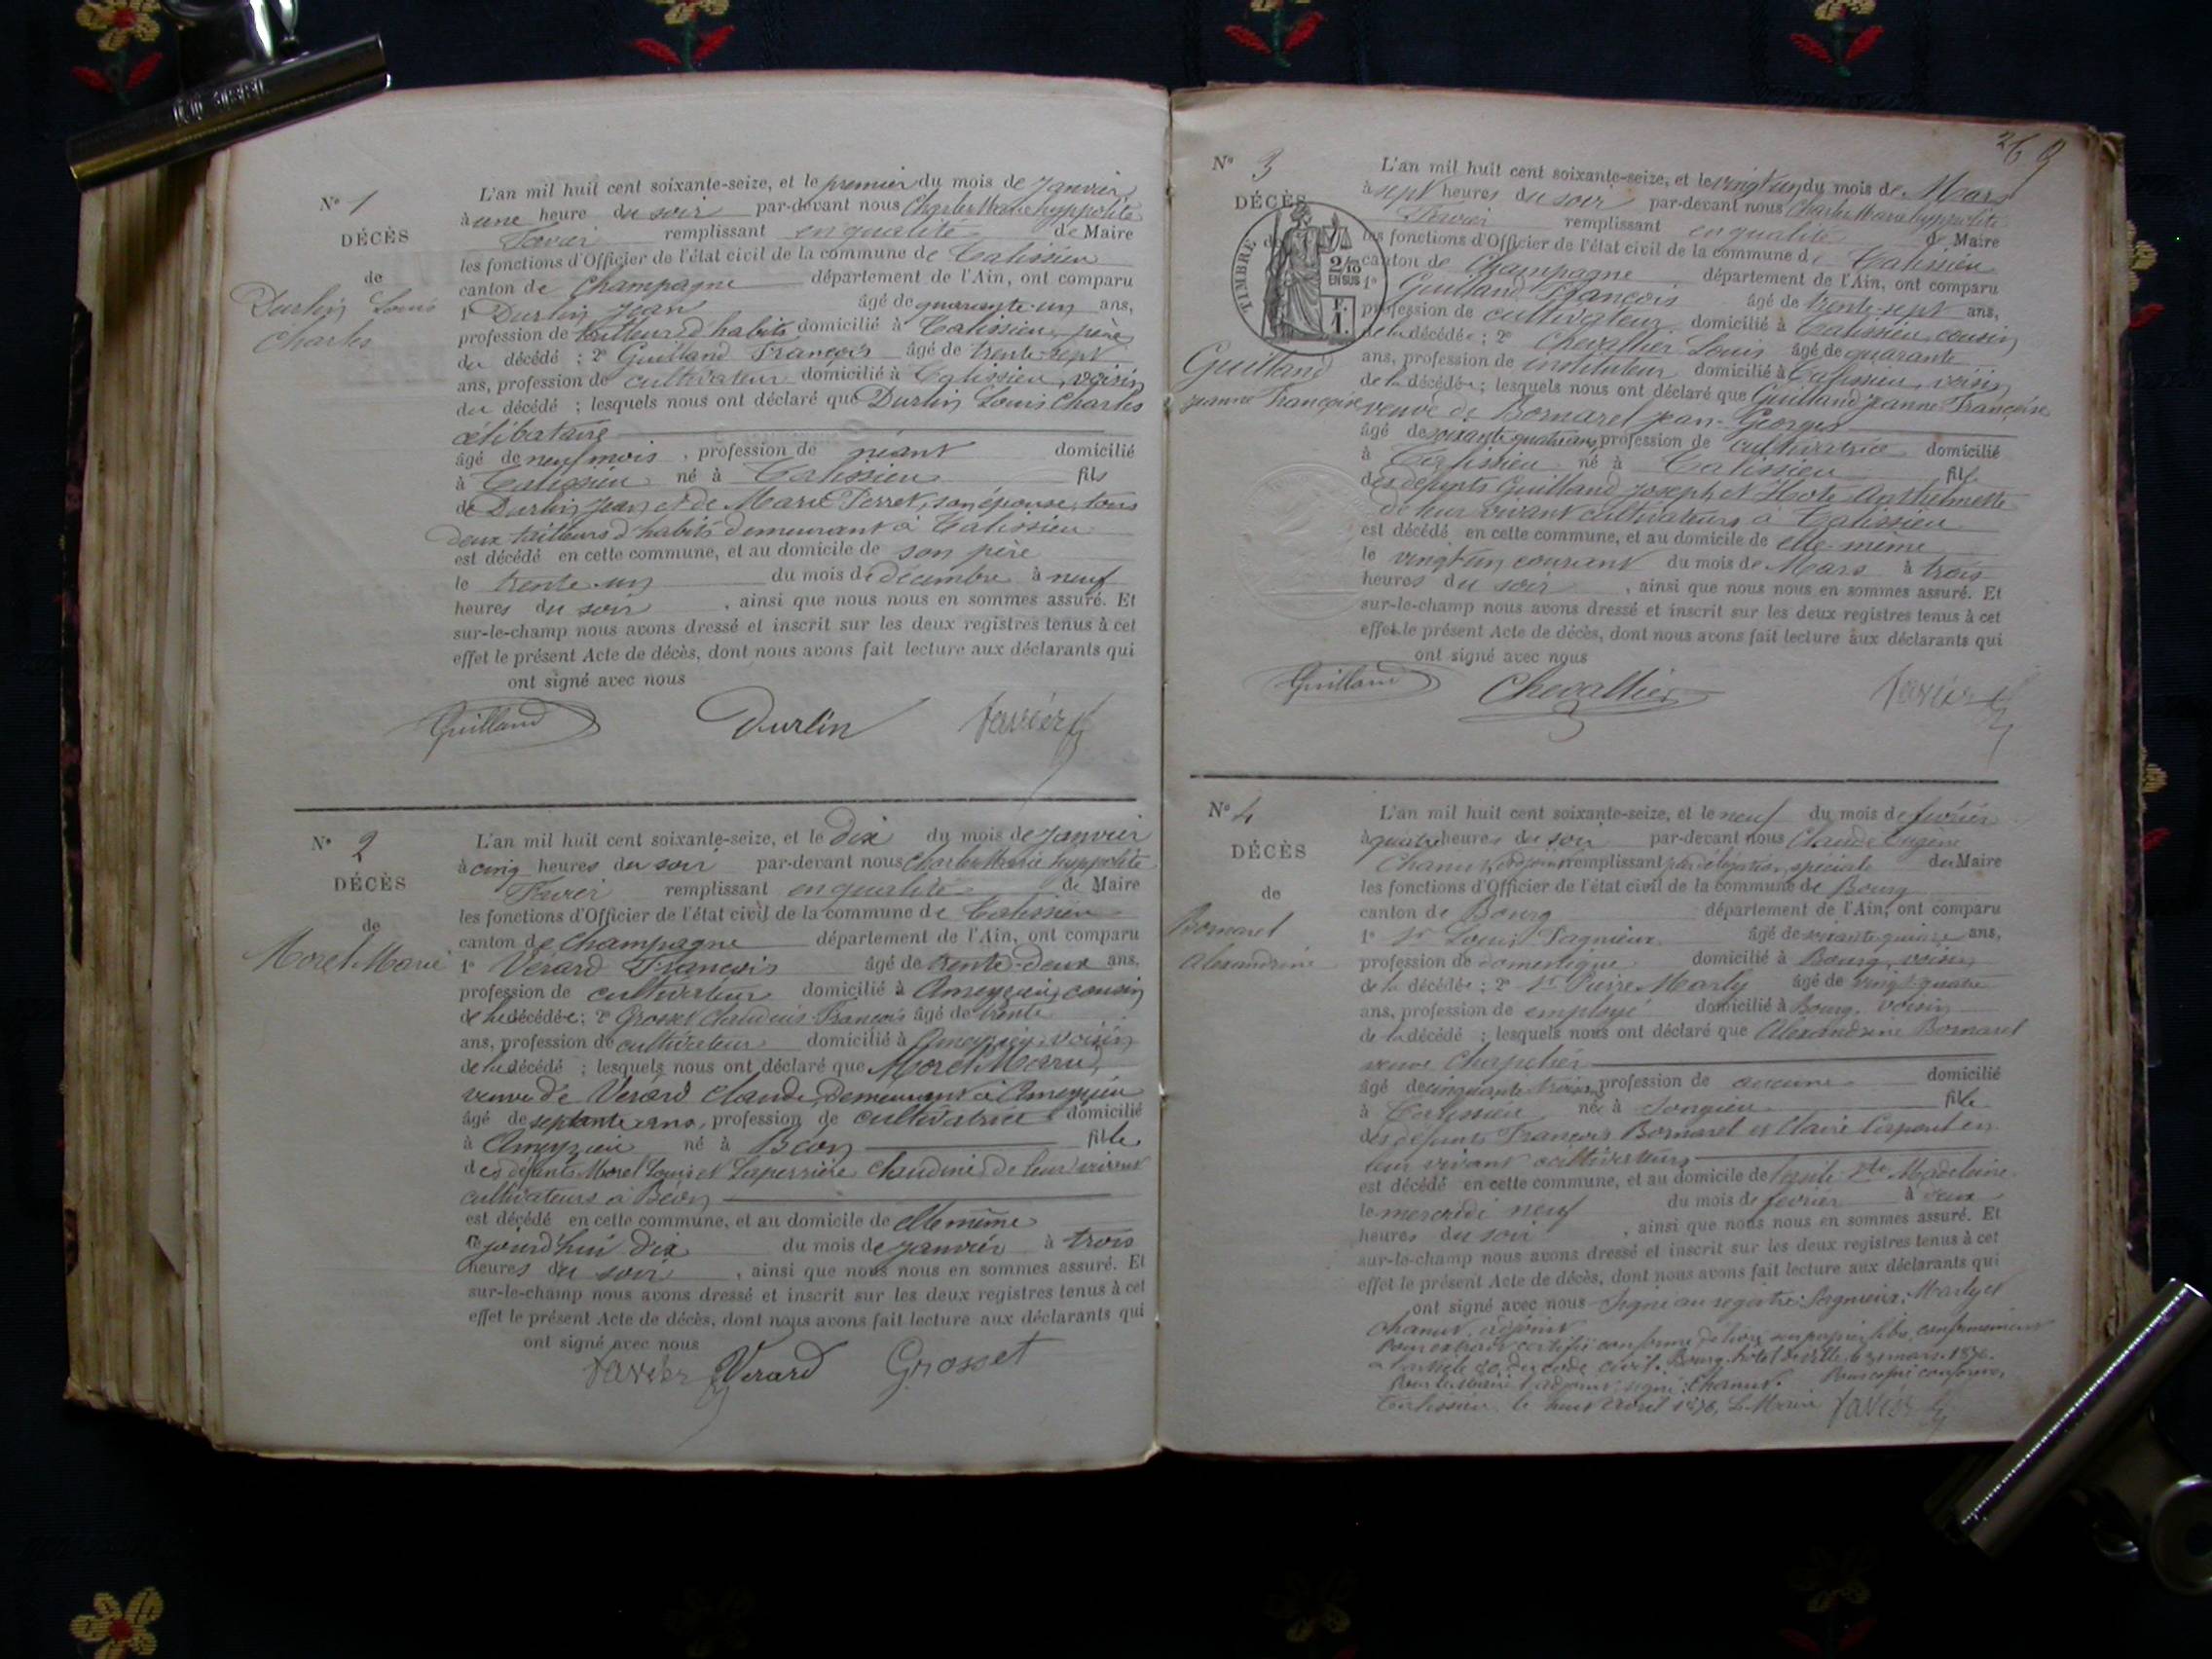 N° 1
DÉCÈS
de
Durlin Louis
Charles
L'an mil huit cent soixante-seize, et le premier du mois de Janvier
à une heure du soir par-devant nous Charles Marie hyppolite
Favier remplissant en qualité de Maire
les fonctions d'Officier de l'état civil de la commune de Talissieu
canton de Champagne département de l'Ain, ont comparu
1° Durlin Jean âgé de quarante-un ans,
profession de tailleur d'habits domicilié à Talissieu, père
du décédé ; 2° Guilland François âgé de trente-sept
ans, profession de cultivateur domicilié à Talissieu, voisin
du décédé ; lesquels nous ont déclaré que Durlin Louis Charles
célibataire
âgé de neuf mois, profession de néant domicilié
à Talissieu né à Talissieu fils
de Durlin Jean et de Marie Perret, son épouse, tous
deux tailleurs d'habits demeurant à Talissieu
est décédé en cette commune, et au domicile de son père
le trente-un du mois de décembre à neuf
heures du soir, ainsi que nous nous en sommes assuré. Et
sur-le-champ nous avons dressé et inscrit sur les deux registres tenus à cet
effet le présent Acte de décès, dont nous avons fait lecture aux déclarants qui
ont signé avec nous
Guilland Durlin Favier
N° 2
DÉCÈS
de
Morel Marie
L'an mil huit cent soixante-seize, et le dix du mois de Janvier
à cinq heures du soir par-devant nous Charles Marie hyppolite
Favier remplissant en qualité de Maire
les fonctions d'Officier de l'état civil de la commune de Talissieu
canton de Champagne département de l'Ain, ont comparu
1° Vérard François âgé de trente-deux ans,
profession de cultivateur domicilié à Ameyzieu, cousin
de la décédée ; 2° Grosset Claudius François âgé de trente
ans, profession de cultivateur domicilié à Ameyzieu, voisin
de la décédé ; lesquels nous ont déclaré que Morel Marie,
veuve de Verard Claude, demeurant à Ameyzieu
âgé de septante ans, profession de cultivatrice domicilié
à Ameyzieu né à Béon fille
des défunts Morel Louis et Laperrière Claudine de leur vivant
cultivateurs à Béon
est décédé en cette commune, et au domicile de elle même
cejourd'hui dix du mois de janvier à trois
heures du soir, ainsi que nous nous en sommes assuré. Et
sur-le-champ nous avons dressé et inscrit sur les deux registres tenus à cet
effet le présent Acte de décès, dont nous avons fait lecture aux déclarants qui
ont signé avec nous
Favier Verard Grosset
269
N° 3
DÉCÈS
de
TIMBRE
2/10
EN SUS
F.
1.
Guilland
Jeanne Françoise
L'an mil huit cent soixante-seize, et le vingt un du mois de Mars
à sept heures du soir par-devant nous Charles Marie hyppolite
Favier remplissant en qualité de Maire
les fonctions d'Officier de l'état civil de la commune de Talissieu
canton de Champagne département de l'Ain, ont comparu
1° Guilland François âgé de trente-sept ans,
profession de cultivateur domicilié à Talissieu, cousin
de la décédée ; 2° Chevallier Louis âgé de quarante
ans, profession de instituteur domicilié à Talissieu, voisin
de la décédée ; lesquels nous ont déclaré que Guilland Jeanne Françoise
veuve de Bornarel Jean-Georges
âgé de soixante quatre ans, profession de cultivatrice domicilié
à Talissieu né à Talissieu fille
des défunts Guilland Joseph et Hote Anthelmette
de leur vivant cultivateurs à Talissieu
est décédé en cette commune, et au domicile de elle-même
le vingt-un courant du mois de Mars à trois
heures du soir, ainsi que nous nous en sommes assuré. Et
sur-le-champ nous avons dressé et inscrit sur les deux registres tenus à cet
effet le présent Acte de décès, dont nous avons fait lecture aux déclarants qui
ont signé avec nous
Guilland Chevallier Favier
N° 4
DÉCÈS
de
Bornarel
Alexandrine
L'an mil huit cent soixante-seize, et le neuf du mois de février
à quatre heures du soir par-devant nous Claude Eugène
Chanut, adjoint remplissant par délégation spéciale du Maire
les fonctions d'Officier de l'état civil de la commune de Bourg
canton de Bourg département de l'Ain, ont comparu
1° Sr Louis Pagnieux âgé de soixante quinze ans,
profession de domestique domicilié à Bourg, voisin
de la décédée ; 2° Sr Pierre Marly âgé de vingt quatre
ans, profession de employé domicilié à Bourg, voisin
de la décédé ; lesquels nous ont déclaré que Alexandrine Bornarel
veuve Charpetier
âgé de cinquante trois ans, profession de aucune domicilié
à Talissieu née à Songieu fille
des défunts François Bornarel et Claire en
leur vivant cultivateurs
est décédé en cette commune, et au domicile de l'asile Ste Madeleine
le mercredi neuf du mois de février à deux
heures du soir, ainsi que nous nous en sommes assuré. Et
sur-le-champ nous avons dressé et inscrit sur les deux registres tenus à cet
effet le présent Acte de décès, dont nous avons fait lecture aux déclarants qui
ont signé avec nous Signé au registre: Pagnieux, Marly et
Chanut, adjoint
Pour extrait certifié conforme délivré sur papier libre, conformément
à l'article 80 du code civil. Bourg, hôtel de ville, le 31 mars 1876.
Pour le Maire l'adjoint: signé: Chanut. Pour copie conforme,
Talissieu le huit avril 1876, Le Maire Favier